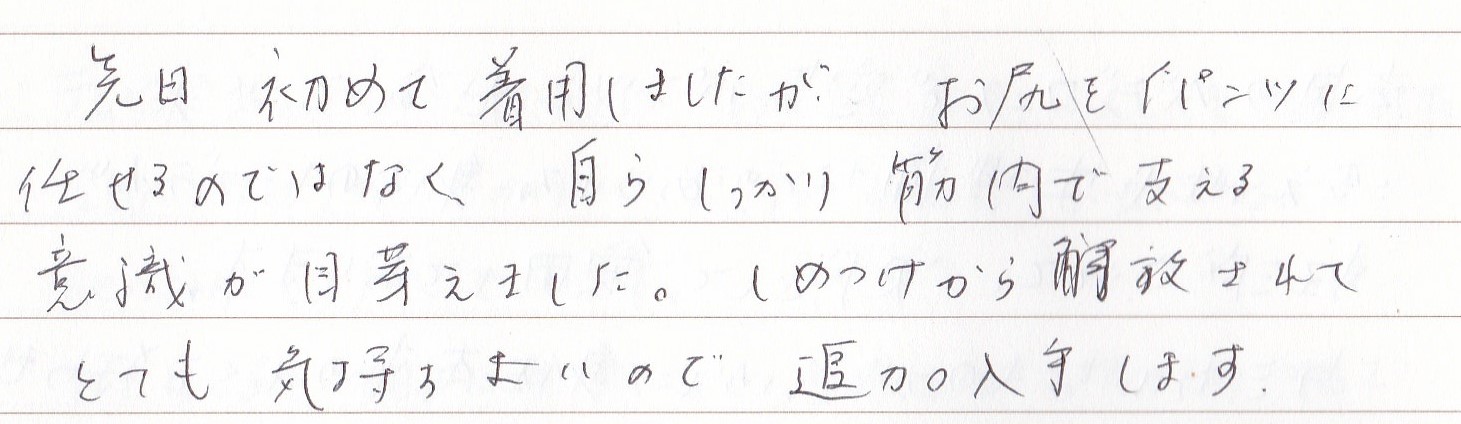 先日 初めて着用しましたが お尻をパンツに
任せるのではなく 自らしっかり筋肉で支える
意識が目芽えました。しめつけから解放されて
とても気持ちよいので 追加入手します.